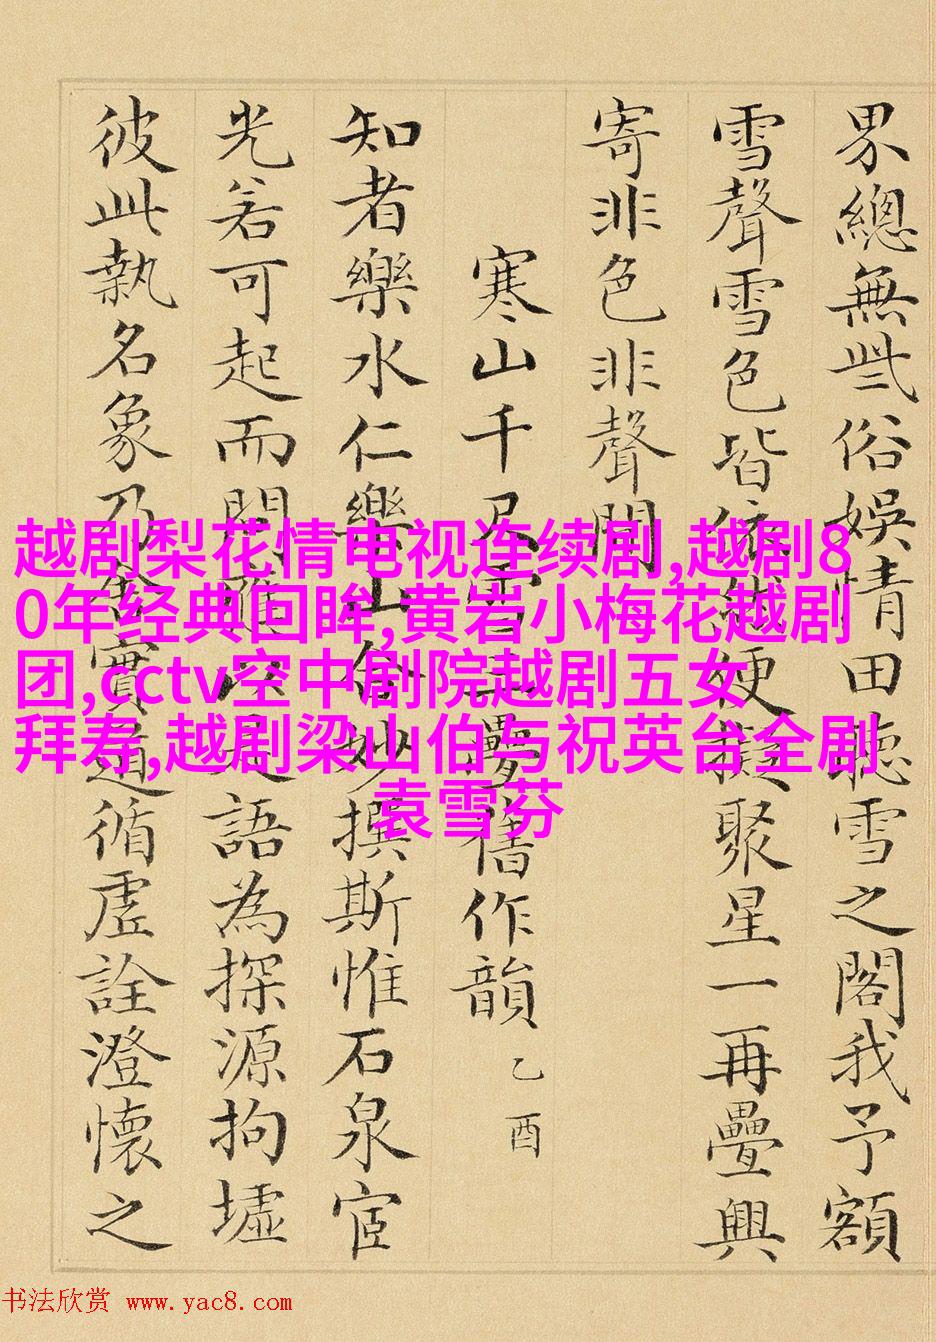 界總無些俗娛情田聽雪之閣我予額
雪聲雪色皆依便擬聚星一再疊興
寄非色非聲間
寒山千尺雪三疊舊作韻 乙酉
知者樂水仁樂山妙撰斯惟石泉宦
光若可起而問是語為探源拘墟
彼此執名象乃實循虛詮澄懷之
越剧梨花情电视连续剧,越剧8
0年经典回眸,黄岩小梅花越剧
团,cctv空中剧院越剧五女
拜寿,越剧梁山伯与祝英台全剧
袁雪芬
书法欣赏 www.yac8.com